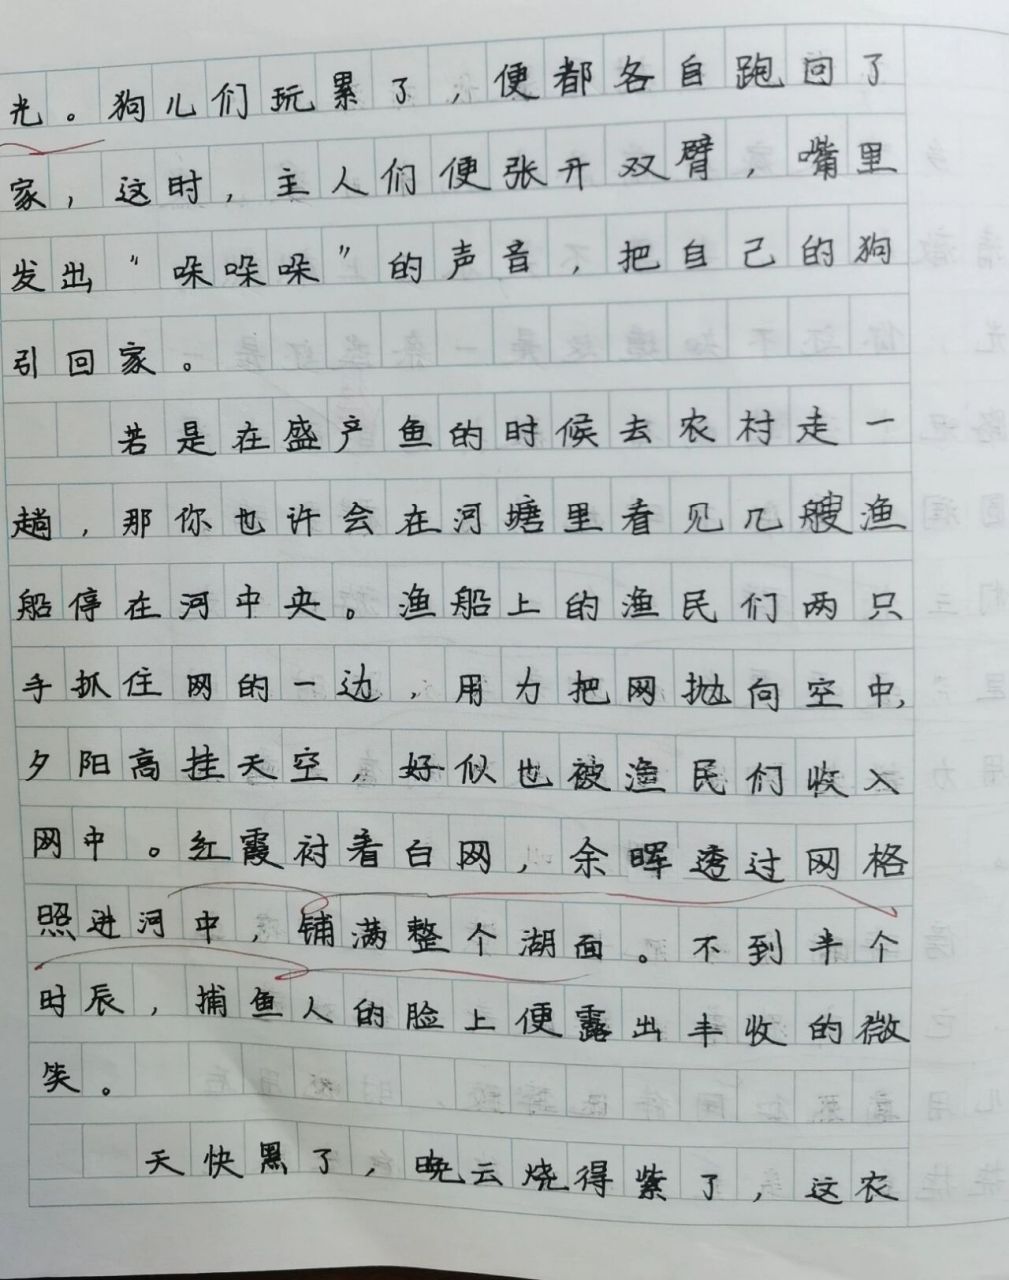 光。狗儿们玩累了，便都各自跑回了
家，这时，主人们便张开双臂，嘴里
发出“哚哚哚”的声音，把自己的狗
引回家。
若是在盛产鱼的时候去农村走一
趟，那你也许会在河塘里看见几艘渔
船停在河中央。渔船上的渔民们两只
手抓住网的一边，用力把网抛向空中，
夕阳高挂天空，好似也被渔民们收入
网中。红霞衬着白网，余晖透过网格
照进河中，铺满整个湖面。不到半个
时辰，捕鱼人的脸上便露出丰收的微
笑。
天快黑了，晚云烧得紫了，这农